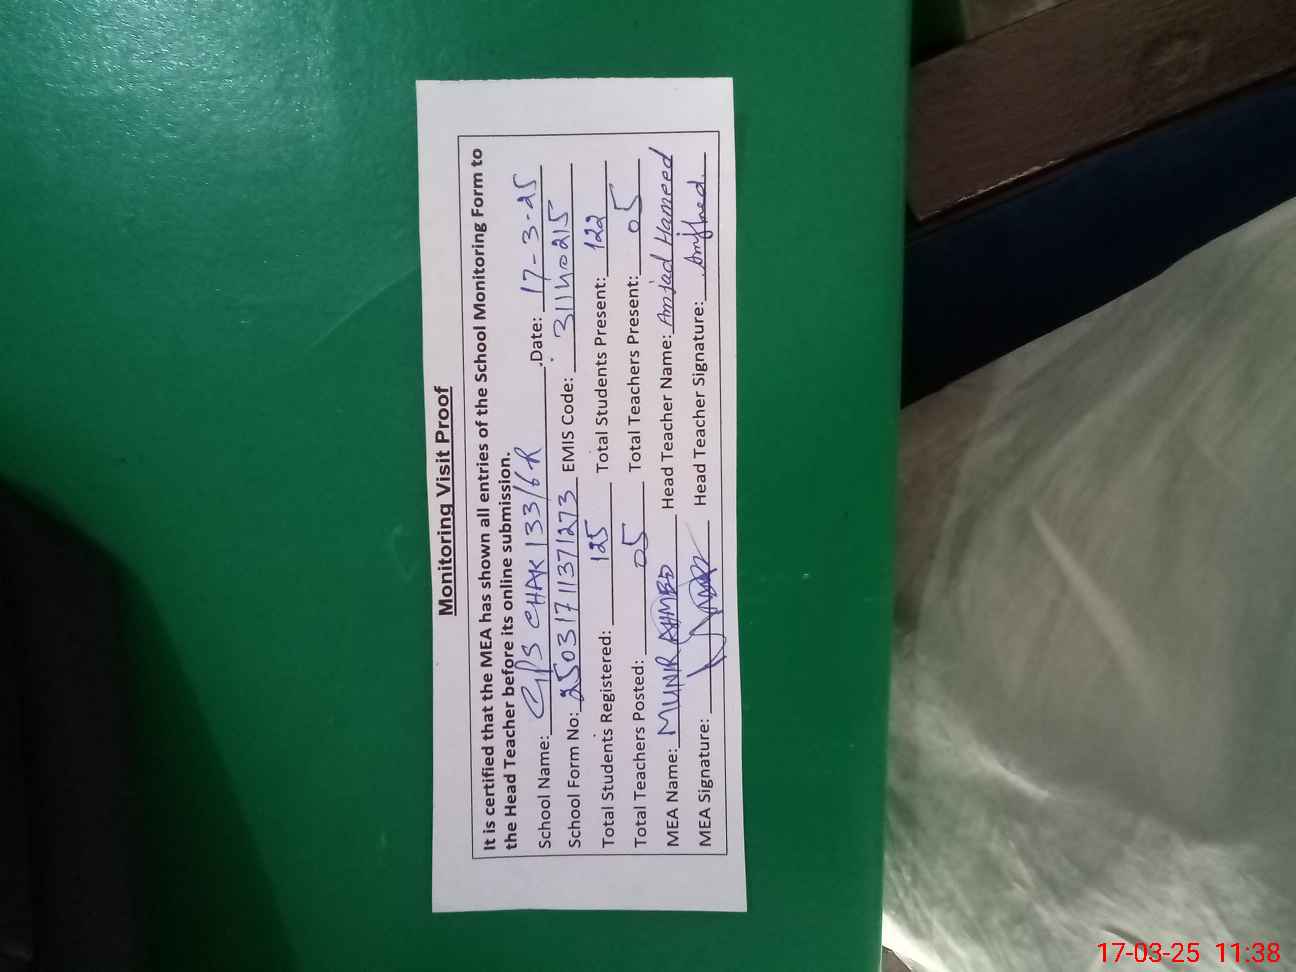 Monitoring Visit Proof
It is certified that the MEA has shown all entries of the School Monitoring Form to
the Head Teacher before its online submission.
School Name: GPS CHAK 133/6-R .Date: 17-3-25
School Form No: 25031711371273 EMIS Code: 31140215
Total Students Registered: 125 Total Students Present: 122
Total Teachers Posted: 05 Total Teachers Present: 05
MEA Name: MUNIR AHMED Head Teacher Name: Amjad Hameed
MEA Signature: Head Teacher Signature:
17-03-25 11:38